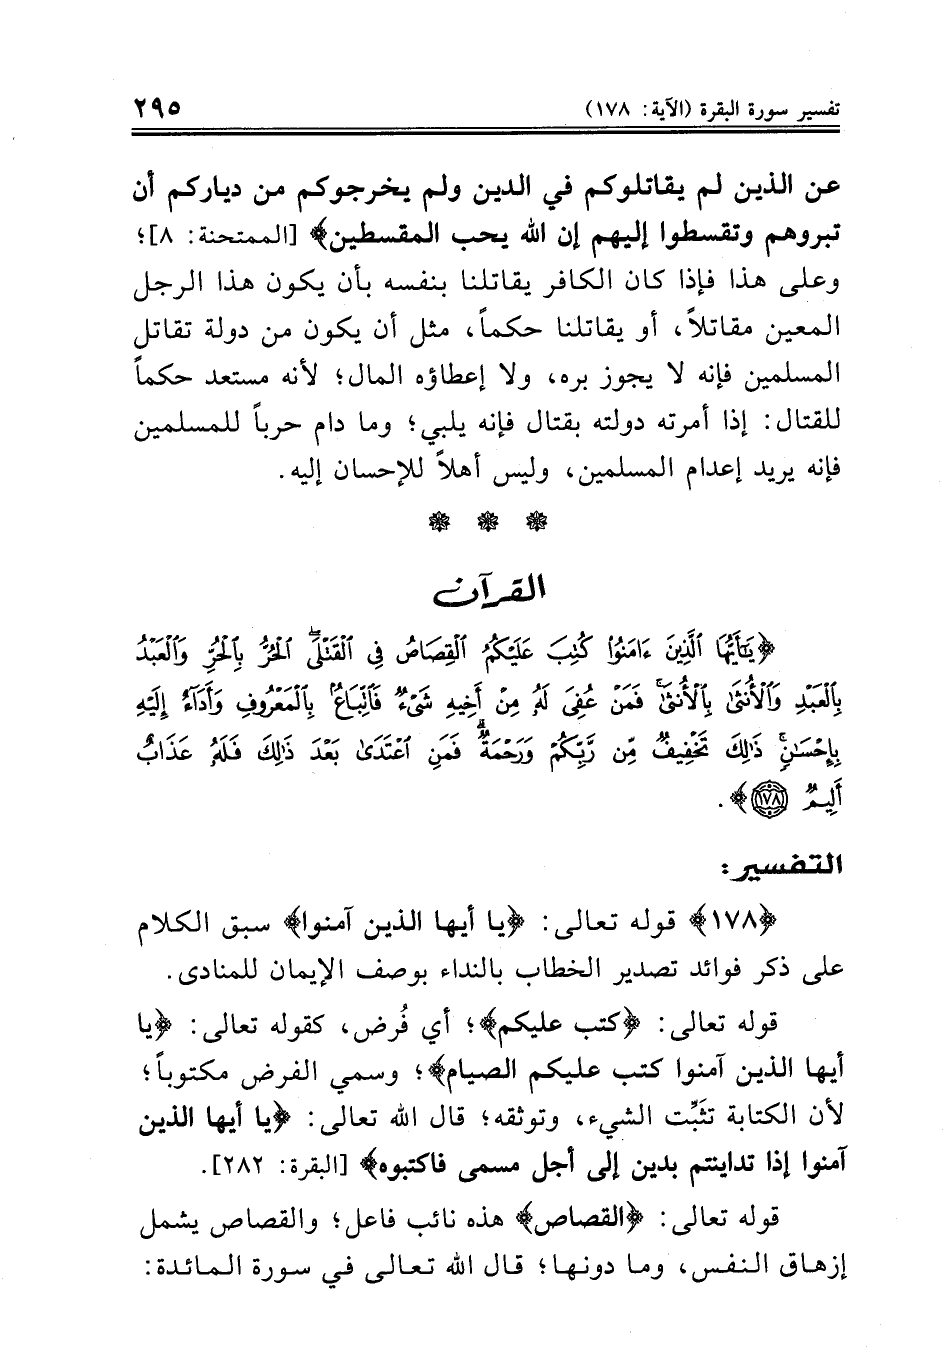 تفسير سورة البقرة (الآية: ١٧٨) ٢٩٥
عن الذين لم يقاتلوكم في الدين ولم يخرجوكم من دياركم أن
تبروهم وتقسطوا إليهم إن الله يحب المقسطين﴾ [الممتحنة: ٨]؛
وعلى هذا فإذا كان الكافر يقاتلنا بنفسه بأن يكون هذا الرجل
المعين مقاتلاً، أو يقاتلنا حكماً، مثل أن يكون من دولة تقاتل
المسلمين فإنه لا يجوز بره، ولا إعطاؤه المال؛ لأنه مستعد حكماً
للقتال: إذا أمرته دولته بقتال فإنه يلبي؛ وما دام حرباً للمسلمين
فإنه يريد إعدام المسلمين، وليس أهلاً للإحسان إليه.
القرآن
﴿يَٰٓأَيُّهَا ٱلَّذِينَ ءَامَنُوا۟ كُتِبَ عَلَيْكُمُ ٱلْقِصَاصُ فِى ٱلْقَتْلَى ۖ ٱلْحُرُّ بِٱلْحُرِّ وَٱلْعَبْدُ
بِٱلْعَبْدِ وَٱلْأُنثَىٰ بِٱلْأُنثَىٰ ۚ فَمَنْ عُفِىَ لَهُۥ مِنْ أَخِيهِ شَىْءٌ فَٱتِّبَاعٌۢ بِٱلْمَعْرُوفِ وَأَدَآءٌ إِلَيْهِ
بِإِحْسَٰنٍ ۗ ذَٰلِكَ تَخْفِيفٌ مِّن رَّبِّكُمْ وَرَحْمَةٌ ۗ فَمَنِ ٱعْتَدَىٰ بَعْدَ ذَٰلِكَ فَلَهُۥ عَذَابٌ
أَلِيمٌ ١٧٨﴾.
التفسير:
﴿١٧٨﴾ قوله تعالى: ﴿يا أيها الذين آمنوا﴾ سبق الكلام
على ذكر فوائد تصدير الخطاب بالنداء بوصف الإيمان للمنادى.
قوله تعالى: ﴿كتب عليكم﴾؛ أي فُرض، كقوله تعالى: ﴿يا
أيها الذين آمنوا كتب عليكم الصيام﴾؛ وسمي الفرض مكتوباً؛
لأن الكتابة تثَبِّت الشيء، وتوثقه؛ قال الله تعالى: ﴿يا أيها الذين
آمنوا إذا تداينتم بدين إلى أجل مسمى فاكتبوه﴾ [البقرة: ٢٨٢].
قوله تعالى: ﴿القصاص﴾ هذه نائب فاعل؛ والقصاص يشمل
إزهاق النفس، وما دونها؛ قال الله تعالى في سورة المائدة: